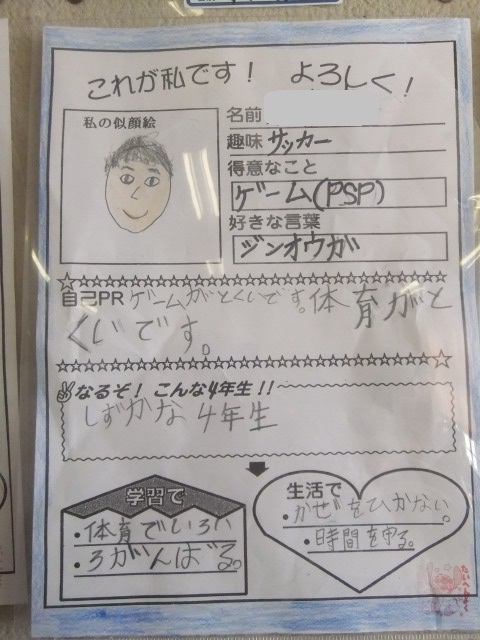 これが私です！ よろしく！
私の似顔絵
名前
趣味 サッカー
得意なこと
ゲーム(PSP)
好きな言葉
ジンオウガ
自己PR ゲームがとくいです。体育がと
くいです。
なるぞ！ こんな4年生！！
しずかな4年生
学習で
・体育でいろい
・ろがんばる。
生活で
・かぜをひかない。
・時間を守る。
たいへんよく